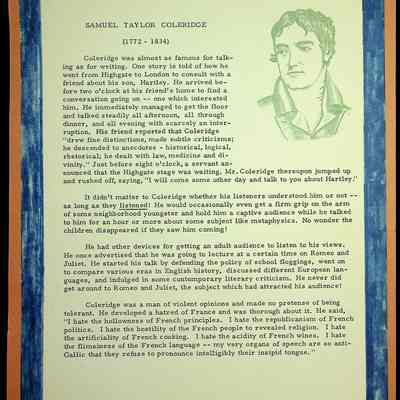 SAMUEL TAYLOR COLERIDGE
(1772 - 1834)
Coleridge was almost as famous for talk-
ing as for writing. One story is told of how he
went from Highgate to London to consult with a
friend about his son, Hartley. He arrived be-
fore two o'clock at his friend's home to find a
conversation going on -- one which interested
him. He immediately managed to get the floor
and talked steadily all afternoon, all through
dinner, and all evening with scarcely an inter-
ruption. His friend reported that Coleridge
"drew fine distinctions, made subtle criticisms;
he descended to anecdotes - historical, logical,
rhetorical; he dealt with law, medicine and di-
vinity." Just before eight o'clock, a servant an-
nounced that the Highgate stage was waiting. Mr. Coleridge thereupon jumped up
and rushed off, saying, "I will come some other day and talk to you about Hartley."
It didn't matter to Coleridge whether his listeners understood him or not --
as long as they listened! He would occasionally even get a firm grip on the arm
of some neighborhood youngster and hold him a captive audience while he talked
to him for an hour or more about some subject like metaphysics. No wonder the
children disappeared if they saw him coming!
He had other devices for getting an adult audience to listen to his views.
He once advertised that he was going to lecture at a certain time on Romeo and
Juliet. He started his talk by defending the policy of school floggings, went on
to compare various eras in English history, discussed different European lan-
guages, and indulged in some contemporary literary criticism. He never did
get around to Romeo and Juliet, the subject which had attracted his audience!
Coleridge was a man of violent opinions and made no pretense of being
tolerant. He developed a hatred of France and was thorough about it. He said,
"I hate the hollowness of French principles. I hate the republicanism of French
politics. I hate the hostility of the French people to revealed religion. I hate
the artificiality of French cooking. I hate the acidity of French wines. I hate
the flimsiness of the French language -- my very organs of speech are so anti-
Gallic that they refuse to pronounce intelligibly their insipid tongue."